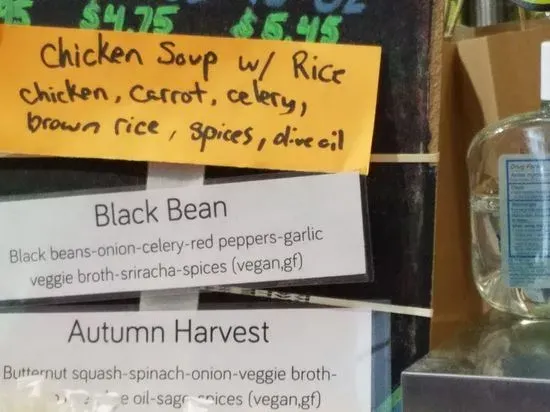 $4.75 $5.45
Chicken Soup w/ Rice
chicken, carrot, celery,
brown rice, spices, olive oil
Black Bean
Black beans-onion-celery-red peppers-garlic
veggie broth-sriracha-spices (vegan,gf)
Autumn Harvest
Butternut squash-spinach-onion-veggie broth-
oil-sage-spices (vegan,gf)
Drug Facts